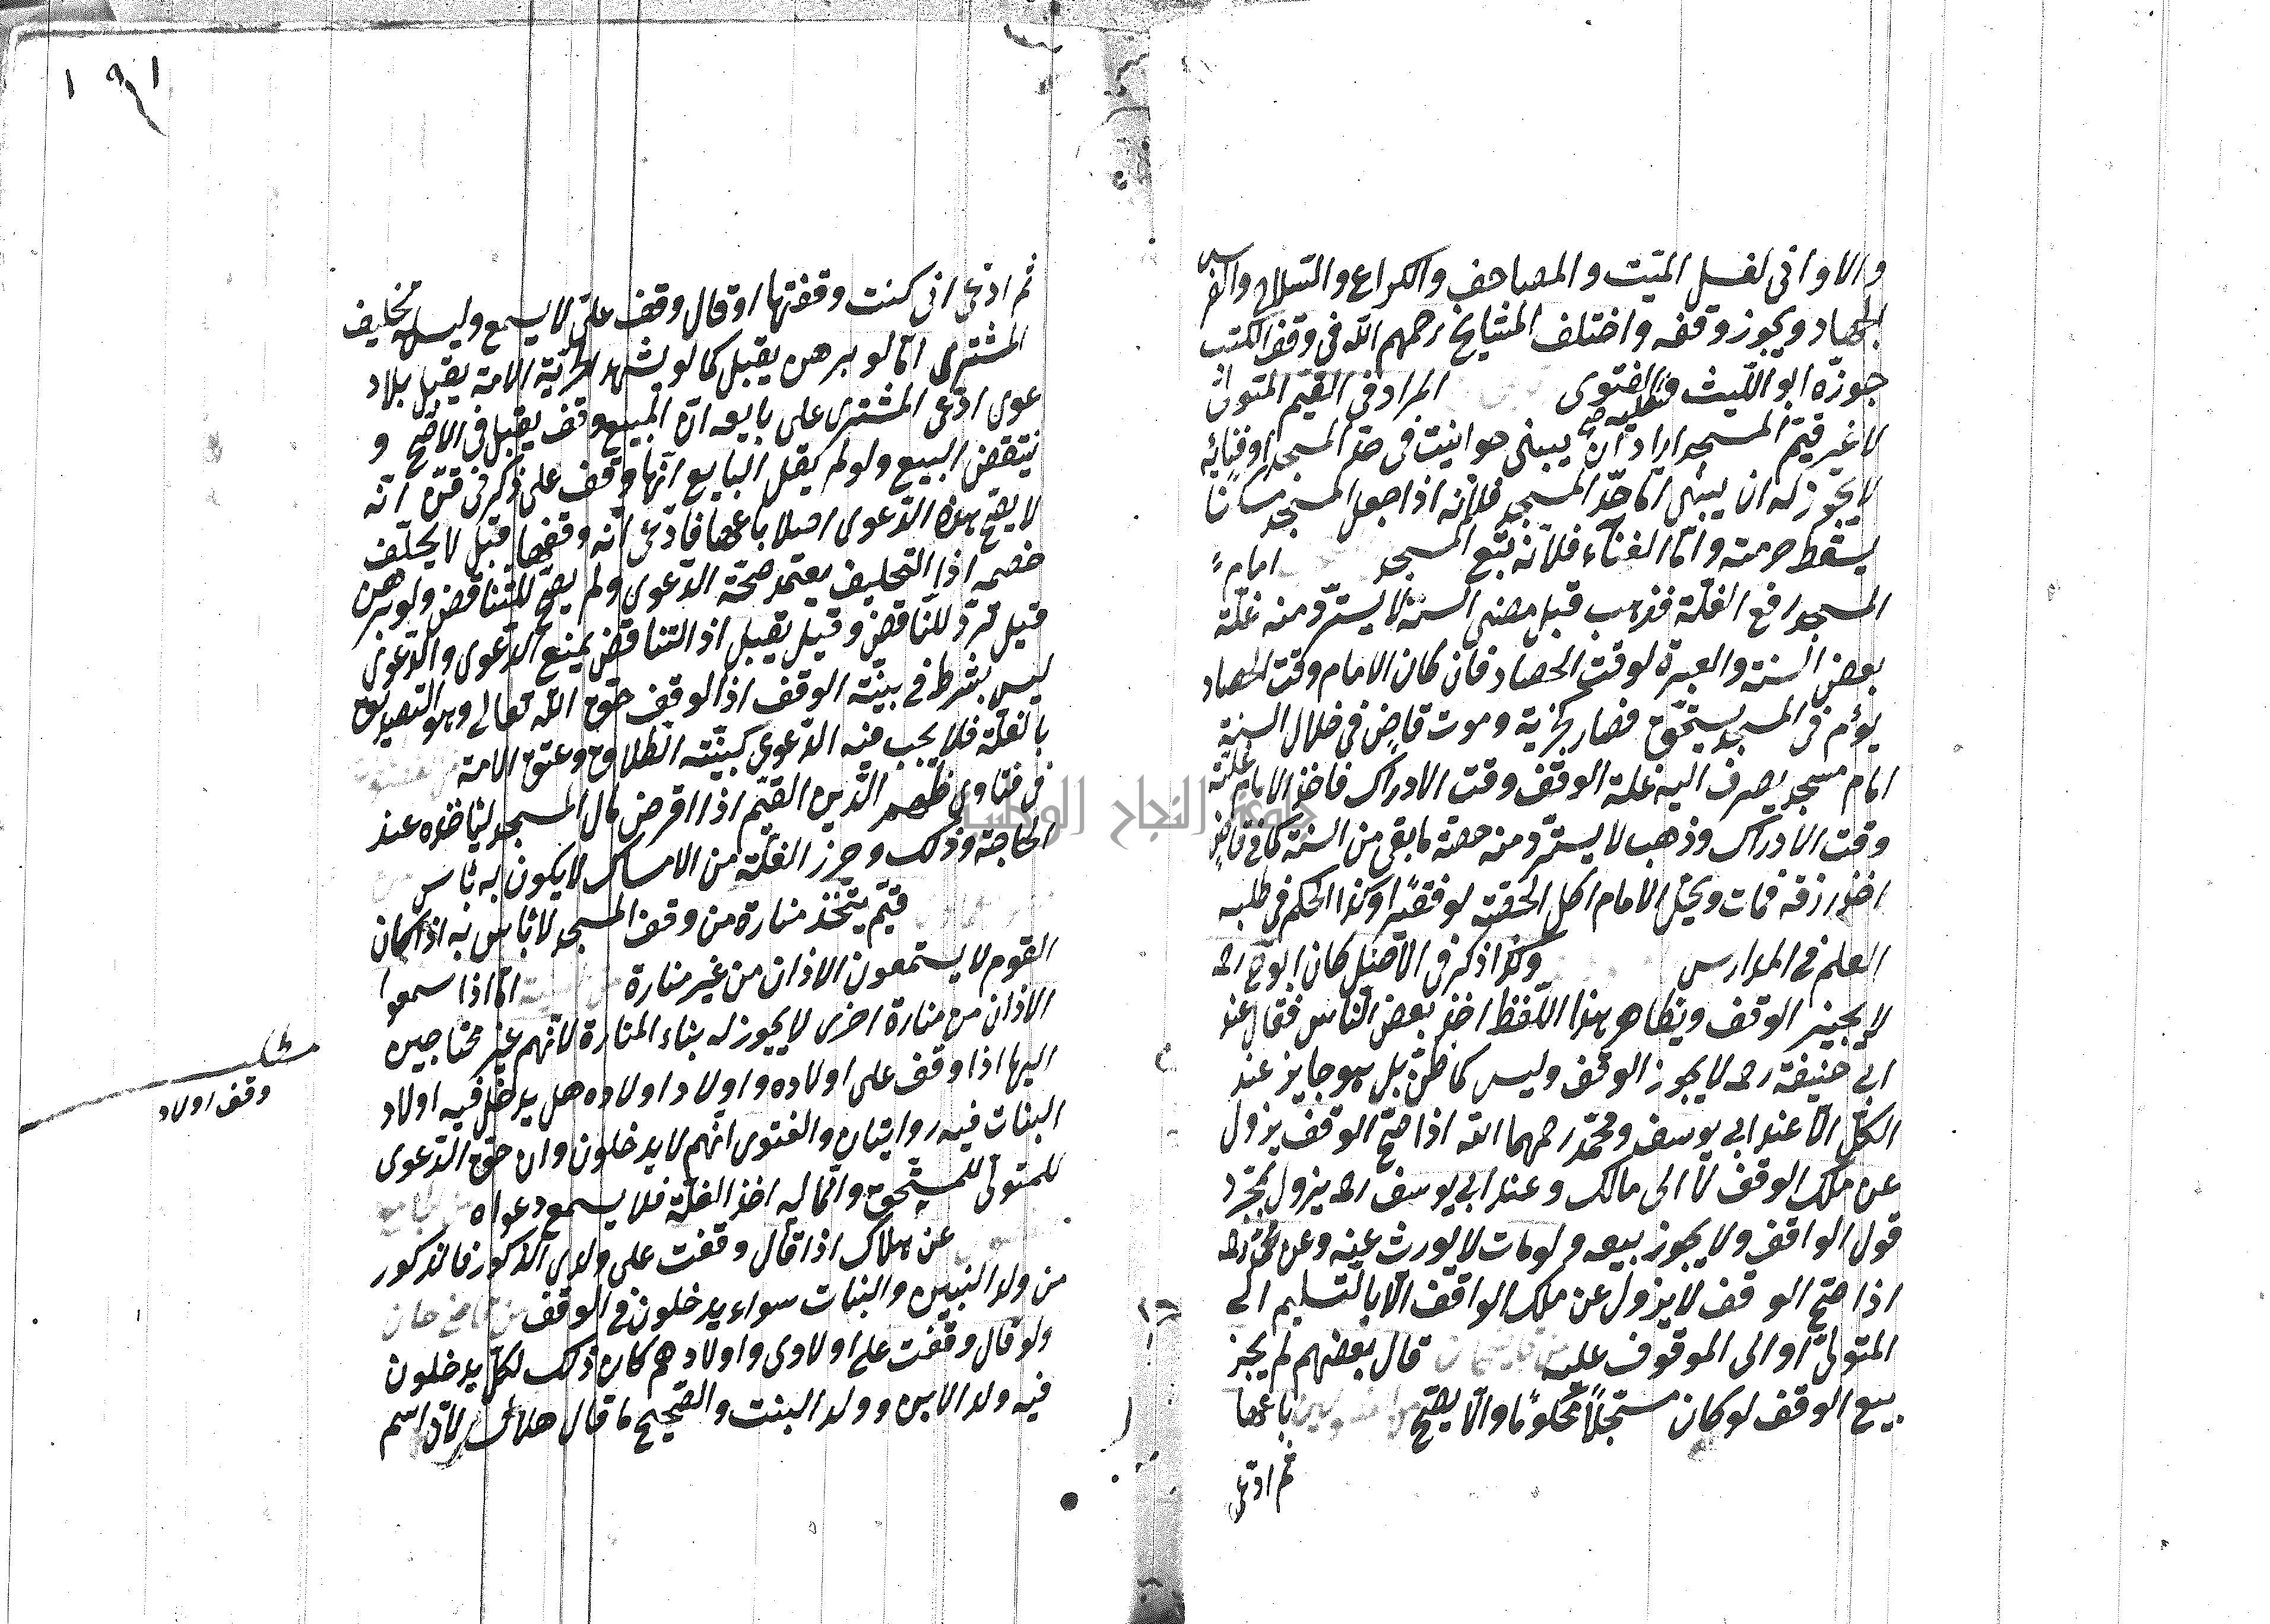 والاوانى لغسل الميّت والمصاحف والكراع والسّلاح والفرس
الجهاد ويجوز وقفه واختلف المشايخ رحمهم الله فى وقف الكتب
جوزه ابو اللّيث وعليه الفتوى المراد فى القيم المتولى
لا غير قيّم المسجد اراد ان يبنى حوانيت فى حدّ المسجد او فنائه
لا يجوز له ان يبنى امّا حدّ المسجد فلانّه اذا جعل المسجد مسكنا
يسقط حرمته وامّا الفنآء فلانّه تبّع المسجد امام
المسجد رفع الغلّة فذهب قبل مضى السنة لا يستردّ منه غلّة
بعض السّنة والعبرة لوقت الحصاد فان كان الامام وقت الحصاد
يؤم فى المسجد يستحّق فصار كجزية وموت قاض فى خلال السنة
امام مسجد يصرف اليه غلة الوقف وقت الادراك فاخذ الامام غلّته
وقت الادراك وذهب لا يستردّ منه حصة ما بقى من السّنة كما فى قاض
اخذ رزقه فمات ويحلّ الامام اكل الحصّة لو فقيرا وكذا الحكم فى طلبه
العلم فى المدارس وكذا ذكر فى الاصل كان ابو ح رحه
لا يجيز الوقف وبظاهر هذا اللّفظ اخذ بعض النّاس فقال عند
ابى حنيفة رحه لا يجوز الوقف وليس كما ظنّ بل هو جايز عند
الكلّ الّا عند ابى يوسف ومحمّد رحمهما الله اذا صّح الوقف يزول
عن ملك الوقف لا الى مالك وعند ابى يوسف رحه يزول بمجرّد
قول الواقف ولا يجوز بيعه ولو مات لا يورث عنه وعن محمّد رحه
اذا صّح الوقف لا يزول عن ملك الواقف الّا بالتّسليم الى
المتولّى او الى الموقوف عليه قال بعضهم لم يجز
بيع الوقف لو كان مستجلاً محكوما والّا يصّح باعها
ثم ادّعى
ثم ادّعى انى كنت وقفتها او قال وقف علىّ لا يسمع وليس له تحليف
المشترى امّا لو برهن يقبل كما لو يشهد لحرّية الامة يقبل بلا د
عوى ادّعى المشترى على بايعه انّ المبيع وقف يقبل فى الاصّح و
ينتقض البيع ولو لم يقل البايع انّها وقف على ذكر فى انّه
لا يصّح هذه الدّعوى اصلا باعها فادّعى انّه وقفها قبل لا يحلّف
خصمه اذا التحليف يعتمد صحّة الدّعوى ولم يصّح للتّناقض ولو برهن
قيل تردّ للتّناقض وقيل يقبل اذ التناقض يمنع الدّعوى والدّعوى
ليس بشرط فى بيّنة الوقف اذ الوقف حقّ الله تعالى وهو التصدّق
بالغلّة فلا يجب فيه الدّعوى كبيّنة الطّلاق وعتق الامة
فى فتاوى ظهير الدّين القيّم اذا اقرض مال المسجد لياخذه عند
الحاجة وذلك وحرز الغلّة من الامساك لا يكون به بأس
قيّم يتّخذ منارة من وقف المسجد لا بأس به اذا كان
القوم لا يستمعون الاذان من غير منارة امّا اذا سمعوا
الاذان من منارة اخرى لا يجوز له بناء المنارة لانّهم غير محتاجين
اليها اذا وقف على اولاده واولاد اولاده هل يدخل فيه اولاد
البنات فيه روايتان والفتوى انّهم لا يدخلون وان حقّ الدّعوى
للمتولّى للمستحق وانّما له اخذ الغلّة فلا يسمع دعواه
عن هلاك اذا قال وقفت على ولدى الذكور فالذكور
من ولد البنين والبنات سواء يدخلون فى الوقف من قاضى خان
ولو قال وقفت على اولادى واولادهم كان ذلك لكلّ يدخلون
فيه ولد الابن وولد البنت والصّحيح ما قال هلال لانّ اسم
وقف اولاد